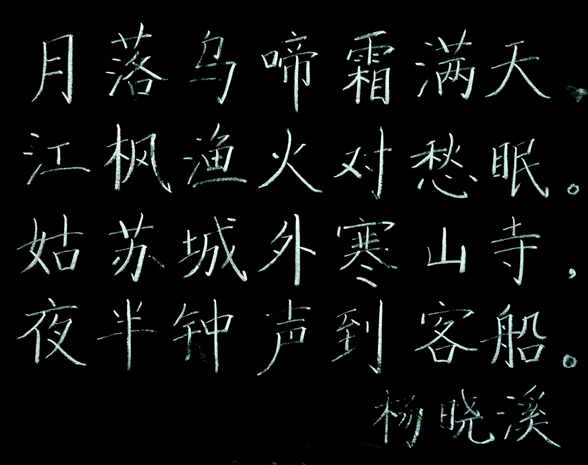 月落乌啼霜满天,
江枫渔火对愁眠。
姑苏城外寒山寺,
夜半钟声到客船。
杨晓溪